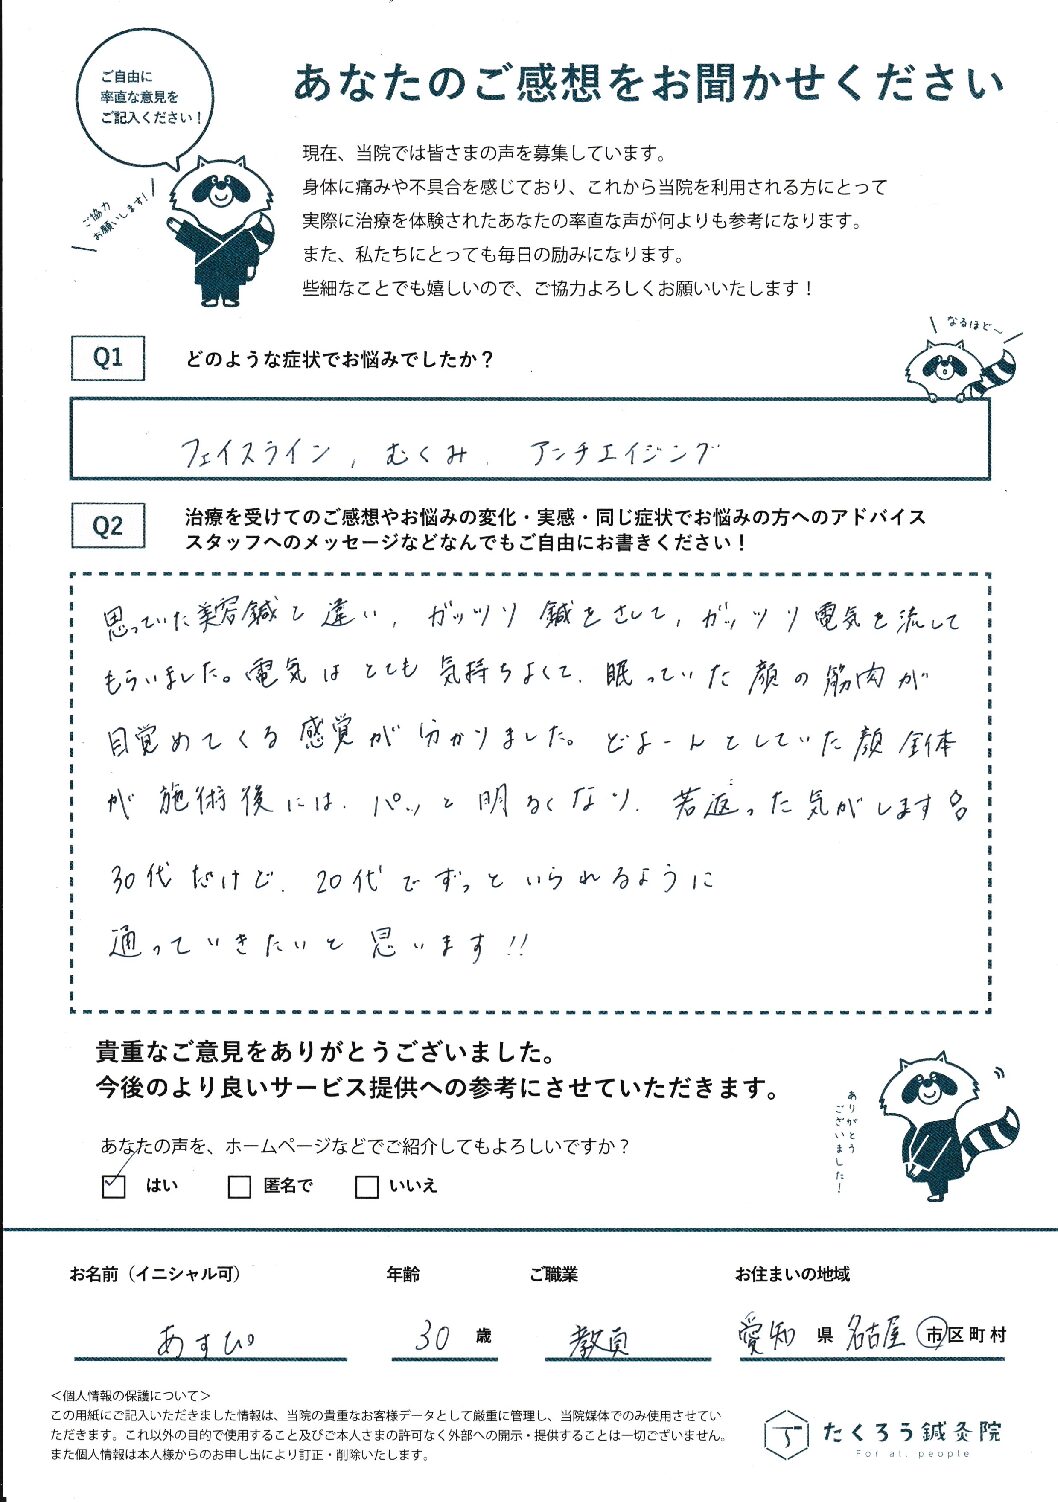 ご自由に
率直な意見を
ご記入ください！
あなたのご感想をお聞かせください
ご協力
お願いします！
現在、当院では皆さまの声を募集しています。
身体に痛みや不具合を感じており、これから当院を利用される方にとって
実際に治療を体験されたあなたの率直な声が何よりも参考になります。
また、私たちにとっても毎日の励みになります。
些細なことでも嬉しいので、ご協力よろしくお願いいたします！
なるほど〜
Q1 どのような症状でお悩みでしたか？
フェイスライン、むくみ、アンチエイジング
Q2 治療を受けてのご感想やお悩みの変化・実感・同じ症状でお悩みの方へのアドバイス
スタッフへのメッセージなどなんでもご自由にお書きください！
思っていた美容鍼と違い、ガッツリ鍼をさして、ガッツリ電気を流して
もらいました。電気はとても気持ちよくて、眠っていた顔の筋肉が
目覚めてくる感覚が分かりました。どよーんとしていた顔全体
が施術後には、パッと明るくなり、若返った気がします
30代だけど、20代でずっといられるように
通っていきたいと思います!!
貴重なご意見をありがとうございました。
今後のより良いサービス提供への参考にさせていただきます。
ありがとう
ございました！
あなたの声を、ホームページなどでご紹介してもよろしいですか？
はい 匿名で いいえ
お名前（イニシャル可） 年齢 ご職業 お住まいの地域
あすぴ 30 歳 教員 愛知 県 名古屋 市区町村
＜個人情報の保護について＞
この用紙にご記入いただきました情報は、当院の貴重なお客様データとして厳重に管理し、当院媒体でのみ使用させてい
ただきます。これ以外の目的で使用すること及びご本人さまの許可なく外部への開示・提供することは一切ございません。
また個人情報は本人様からのお申し出により訂正・削除いたします。
たくろう鍼灸院
For all people